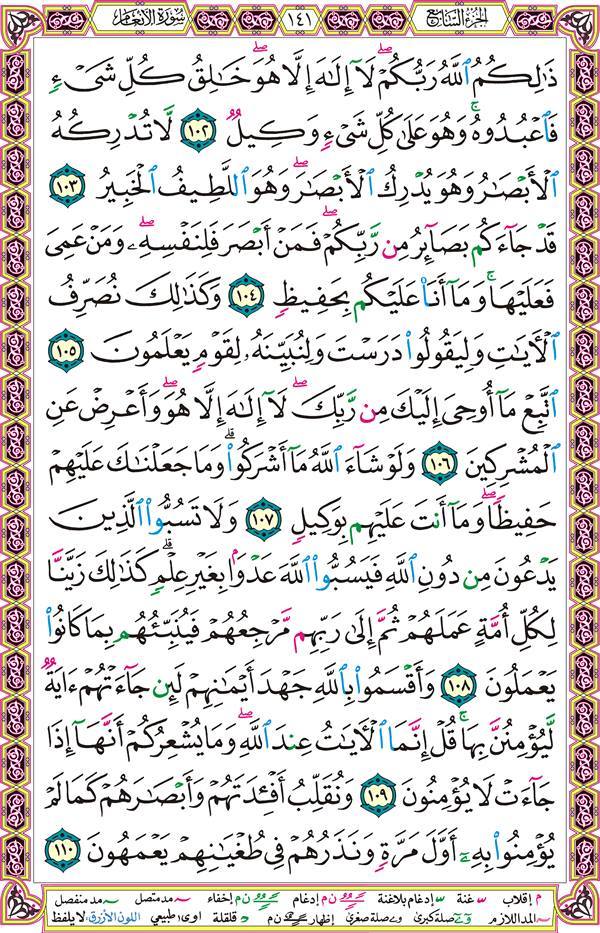 الجزء السابع ١٤١ سورة الأنعام
ذَٰلِكُمُ ٱللَّهُ رَبُّكُمْ ۖ لَآ إِلَـٰهَ إِلَّا هُوَ ۖ خَـٰلِقُ كُلِّ شَىْءٍ
فَٱعْبُدُوهُ ۚ وَهُوَ عَلَىٰ كُلِّ شَىْءٍ وَكِيلٌ ١٠٢ لَّا تُدْرِكُهُ
ٱلْأَبْصَـٰرُ وَهُوَ يُدْرِكُ ٱلْأَبْصَـٰرَ ۖ وَهُوَ ٱللَّطِيفُ ٱلْخَبِيرُ ١٠٣
قَدْ جَآءَكُم بَصَآئِرُ مِن رَّبِّكُمْ ۖ فَمَنْ أَبْصَرَ فَلِنَفْسِهِۦ ۖ وَمَنْ عَمِىَ
فَعَلَيْهَا ۚ وَمَآ أَنَا۠ عَلَيْكُم بِحَفِيظٍ ١٠٤ وَكَذَٰلِكَ نُصَرِّفُ
ٱلْـَٔايَـٰتِ وَلِيَقُولُوا۟ دَرَسْتَ وَلِنُبَيِّنَهُۥ لِقَوْمٍ يَعْلَمُونَ ١٠٥
ٱتَّبِعْ مَآ أُوحِىَ إِلَيْكَ مِن رَّبِّكَ ۖ لَآ إِلَـٰهَ إِلَّا هُوَ ۖ وَأَعْرِضْ عَنِ
ٱلْمُشْرِكِينَ ١٠٦ وَلَوْ شَآءَ ٱللَّهُ مَآ أَشْرَكُوا۟ ۗ وَمَا جَعَلْنَـٰكَ عَلَيْهِمْ
حَفِيظًا ۖ وَمَآ أَنتَ عَلَيْهِم بِوَكِيلٍ ١٠٧ وَلَا تَسُبُّوا۟ ٱلَّذِينَ
يَدْعُونَ مِن دُونِ ٱللَّهِ فَيَسُبُّوا۟ ٱللَّهَ عَدْوًۢا بِغَيْرِ عِلْمٍ ۗ كَذَٰلِكَ زَيَّنَّا
لِكُلِّ أُمَّةٍ عَمَلَهُمْ ثُمَّ إِلَىٰ رَبِّهِم مَّرْجِعُهُمْ فَيُنَبِّئُهُم بِمَا كَانُوا۟
يَعْمَلُونَ ١٠٨ وَأَقْسَمُوا۟ بِٱللَّهِ جَهْدَ أَيْمَـٰنِهِمْ لَئِن جَآءَتْهُمْ ءَايَةٌ
لَّيُؤْمِنُنَّ بِهَا ۚ قُلْ إِنَّمَا ٱلْـَٔايَـٰتُ عِندَ ٱللَّهِ ۖ وَمَا يُشْعِرُكُمْ أَنَّهَآ إِذَا
جَآءَتْ لَا يُؤْمِنُونَ ١٠٩ وَنُقَلِّبُ أَفْـِٔدَتَهُمْ وَأَبْصَـٰرَهُمْ كَمَا لَمْ
يُؤْمِنُوا۟ بِهِۦٓ أَوَّلَ مَرَّةٍ وَنَذَرُهُمْ فِى طُغْيَـٰنِهِمْ يَعْمَهُونَ ١١٠
م إقلاب غنة إدغام بلاغنة ن م إدغام ن م إخفاء مد متصل مد منفصل
المد اللازم صلة كبرى صلة صغرى إظهار ن م قلقلة اوى طبيعي اللون الأزرق لا يلفظ